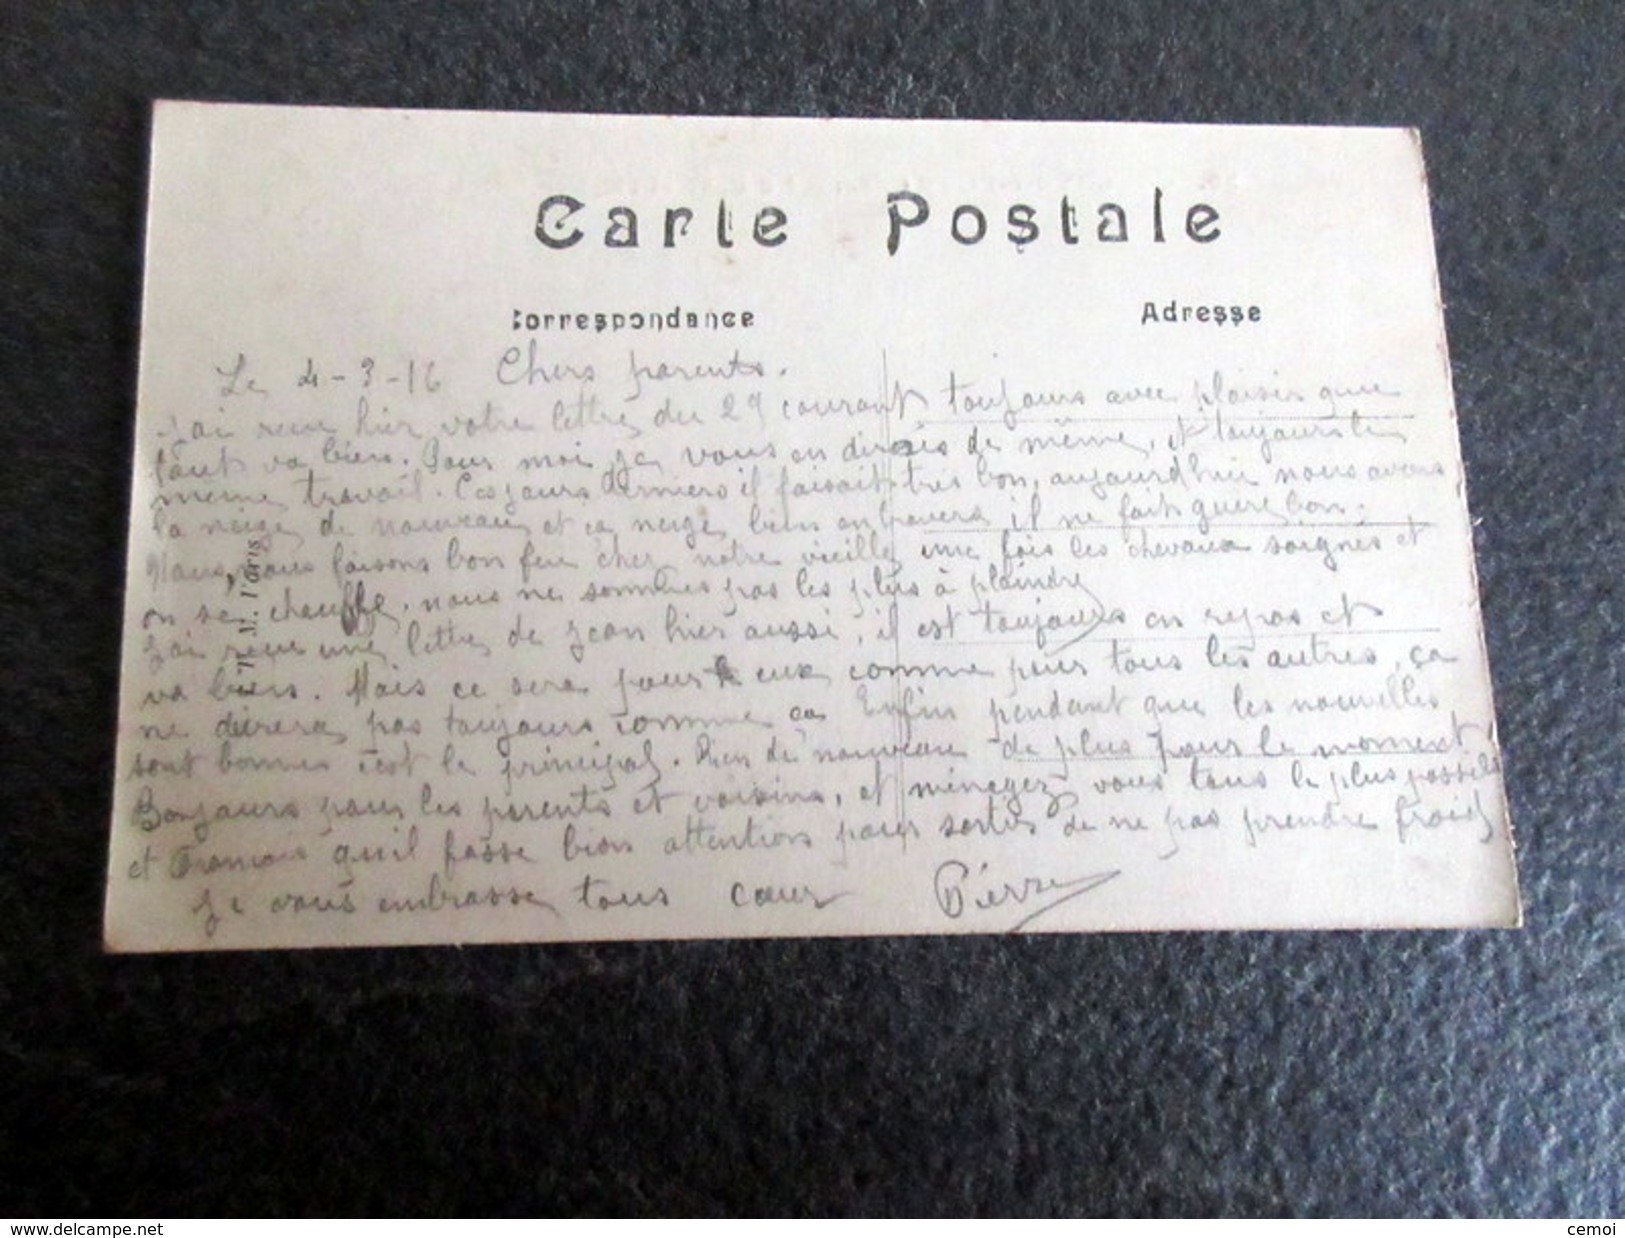 Carte Postale
Correspondance
Adresse
Le 4-3-16 Chers parents.
J'ai reçu hier votre lettre du 29 courant toujours avec plaisir que
tout va bien. Pour moi je vous en dirais de même, et toujours le
même travail. Ces jours derniers il faisait très bon, aujourd'hui nous avons
la neige de nouveau et ça neige bien en travers il ne fait guère bon.
Mais nous faisons bon feu cher notre vieille une fois les chevaux soignés et
on se chauffe, nous ne sommes pas les plus à plaindre
J'ai reçu une lettre de Jean hier aussi, il est toujours en repos et
va bien. Mais ce sera pour eux comme pour tous les autres, ça
ne durera pas toujours comme ça Enfin pendant que les nouvelles
sont bonnes c'est le principal. Rien de nouveau de plus pour le moment
Bonjours pour les parents et voisins, et ménagez vous tous le plus possible
et François qu'il fasse bien attention pour sortir de ne pas prendre froid
Je vous embrasse tous cœur Pierre
M. Paris
https://www.delcampe.net
cemoi